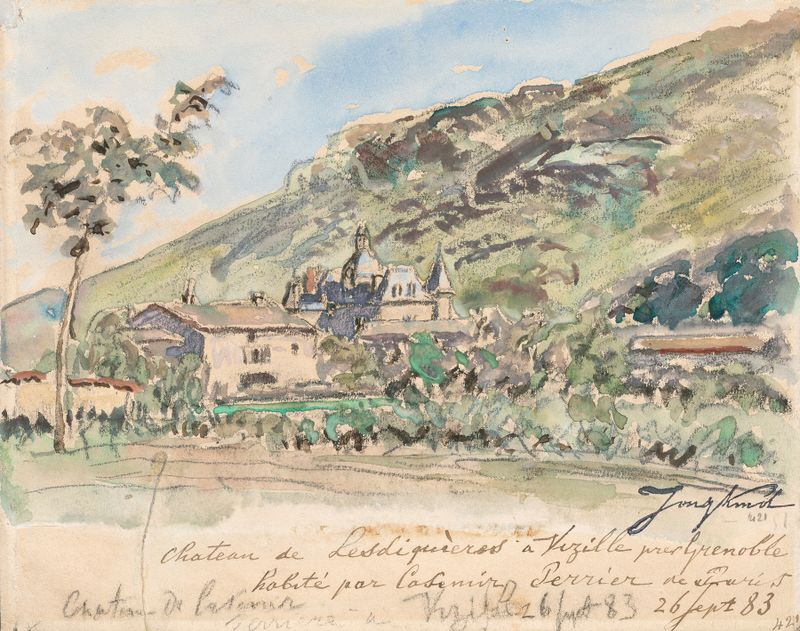 Jongkind
421
Chateau de Lesdiguières a Vizille pres Grenoble
habité par Casimir Perrier de Paris
26 sept 83
Chateau de Casimir
Perrier a Vizille 26 sept 83
421